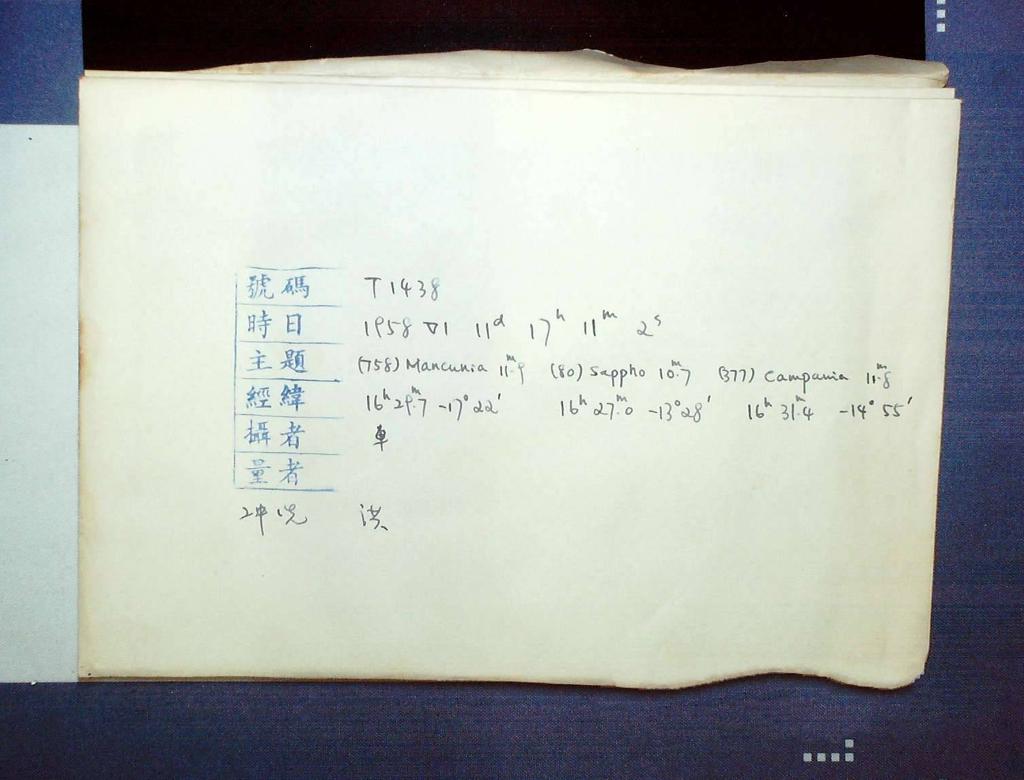 號碼 T1438
時日 1958 VI 11ᵈ 17ʰ 11ᵐ 2ˢ
主題 (758) Mancunia 11ᵐ.9 (80) Sappho 10ᵐ.7 (377) Campania 11ᵐ.8
經緯 16ʰ 29ᵐ.7 -17° 22′ 16ʰ 27ᵐ.0 -13° 28′ 16ʰ 31ᵐ.4 -14° 55′
攝者 車
量者
冲洗 洪